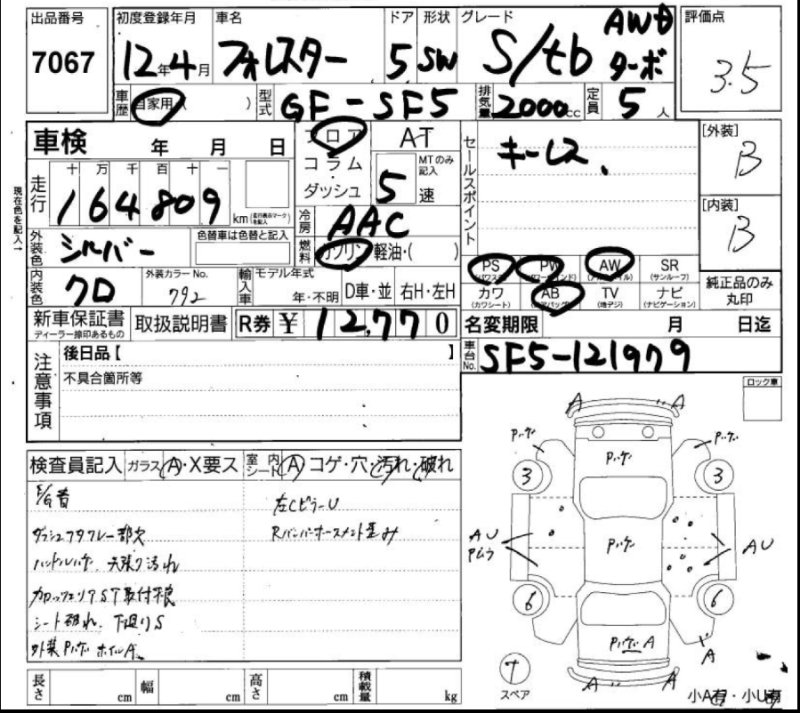 出品番号 初度登録年月 車名 ドア 形状 グレード 評価点
7067 12年4月 フォレスター 5 SW S/tb AWD ターボ 3.5
車歴 自家用( ) 型式 GF-SF5 排気量 2000cc 定員 5人
車検 年 月 日 フロア AT セールスポイント キーレス、 [外装] B
コラム MTのみ記入
ダッシュ 5速
現在色を記入→
走行 十 万 千 百 十 一
164809 km (走行表示マークを記入)
冷房 AAC [内装] B
外装色 シルバー 色替車は色替と記入 燃料 ガソリン 軽油・( )
PS (パワステ) PW (パワーウインド) AW (アルミホイル) SR (サンルーフ)
内装色 クロ 外装カラーNo. 792 輸入車 モデル年式 年・不明 D車・並 右H・左H
カワ (カワシート) AB (エアバッグ) TV (地デジ) ナビ (ナビゲーション) 純正品のみ丸印
新車保証書 ディーラー捺印あるもの 取扱説明書 R券 ¥ 12,770 名変期限 月 日迄
注意事項 後日品【 】 車台No. SF5-121979
不具合箇所等
ロック車
検査員記入 ガラス A・X要ス 室内シート A コゲ・穴・汚れ・破れ
E/G音 左CピラーU
Rバンパーホースメント歪み
ハンドルハゲ 天張り汚れ
シート破れ、下廻りS
A A
3 3
AU AU
6 6
A A
A A
スペア
長さ cm 幅 cm 高さ cm 積載量 kg
小A有・小U有